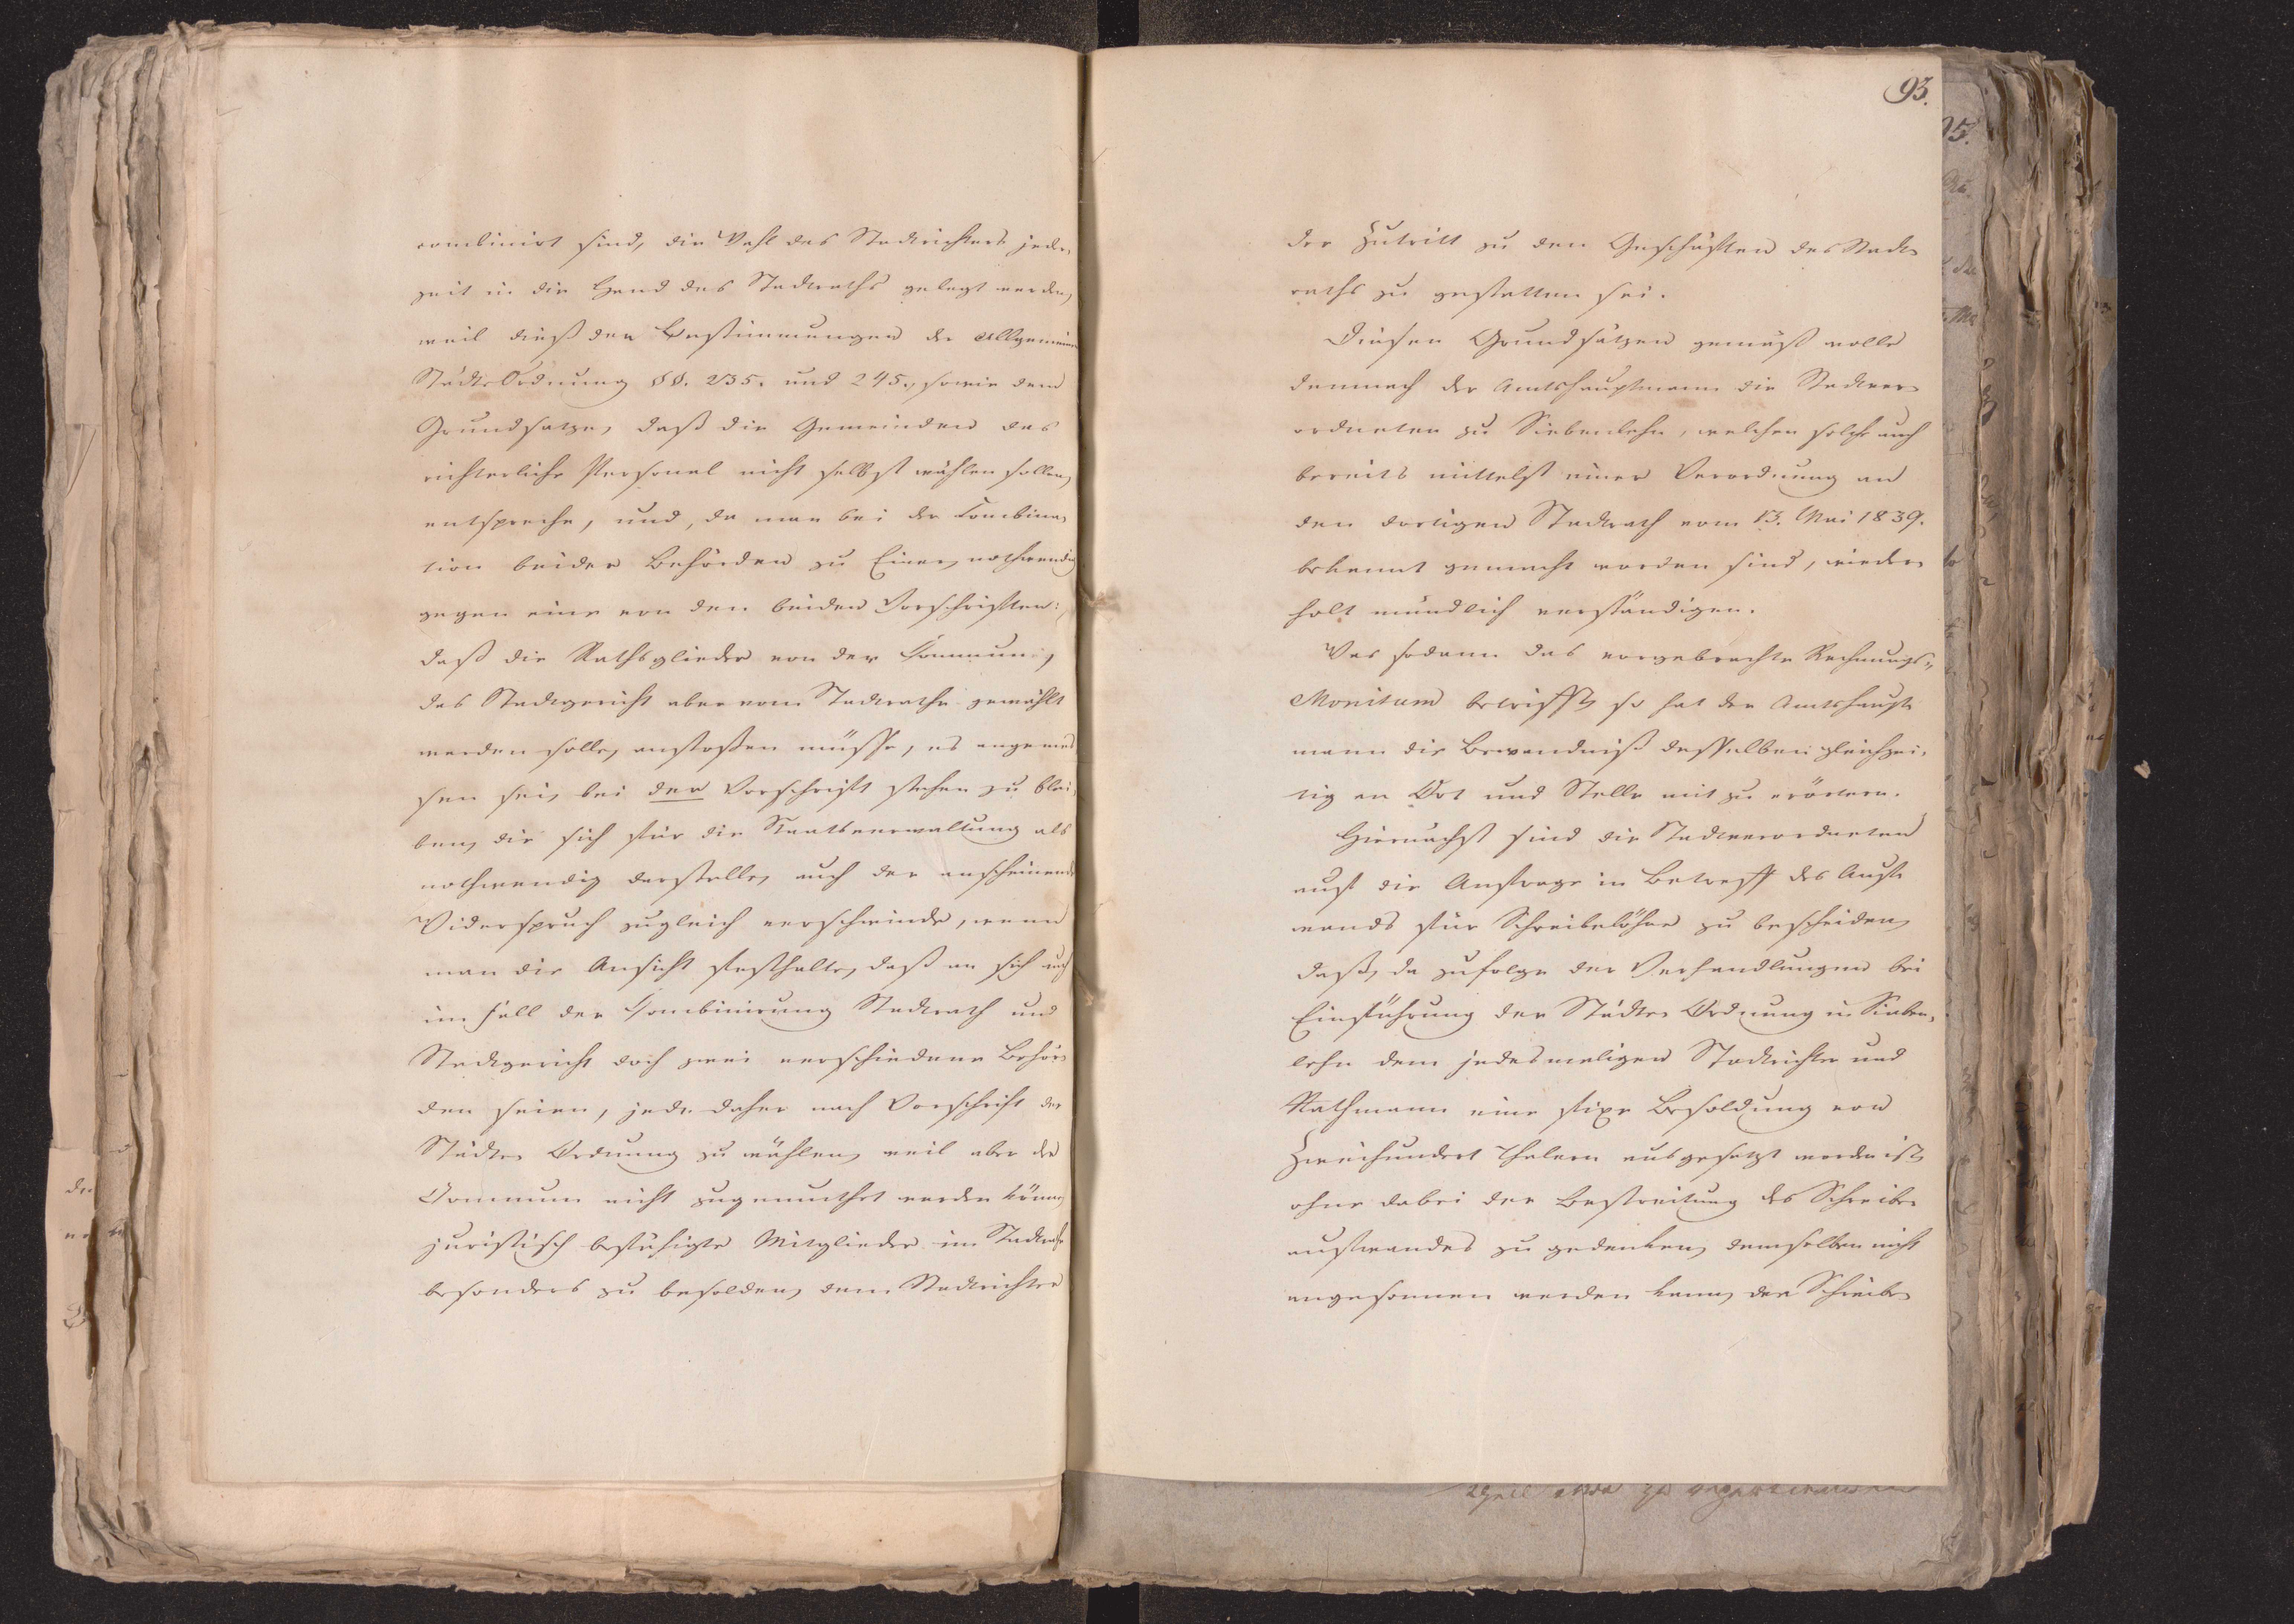 combinirt sind, die Wahl des Stadtrichters jeder-
zeit in die Hand des Stadtraths gelegt werden,
weil dieß den Bestimmungen der Allgemeinen
Städte Ordnung §§. 235. und 245., sowie dem
Grundsatze, daß die Gemeinden das
richterliche Personal nicht selbst wählen sollen,
entspreche, und, da man bei der Combina-
tion beider Behörden zu Einer, nothwendig
gegen eine von den beiden Vorschriften:
daß die Rathsglieder von der Commun,
das Stadtgericht aber vom Stadtrathe gewählt
werden solle, anstoßen müsse, es angemes-
sen sei, bei der Vorschrift stehen zu blei-
ben, die sich für die Staatsverwaltung als
nothwendig darstelle, auch der anscheinende
Widerspruch zugleich verschwinde, wenn
man die Ansicht festhalte, daß an sich auch
im Fall der Combinirung Stadtrath und
Stadtgericht doch zwei verschiedene Behör-
den seien, jede daher nach Vorschrift der
Städte Ordnung zu wählen, weil aber der
Commun nicht zugemuthet werden könne,
juristisch befähigte Mitglieder im Stadtrathe
besonders zu besolden, dem Stadtrichter
93.
der Zutritt zu den Geschäften des Stadt-
raths zu gestatten sei.
Diesen Grundsätzen gemäß wolle
demnach der Amtshauptmann die Stadtver-
ordneten zu Siebenlehn, welchen solche auch
bereits mittelst einer Verordnung an
den dortigen Stadtrath vom 13. Mai 1839.
bekannt gemacht worden sind, wieder-
holt mündlich verständigen.
Was sodann das vorgebrachte Rechnungs-
Monitum betrifft, so hat der Amtshaupt-
mann die Bewandniß desselben gleichzei-
tig an Ort und Stelle mit zu erörtern.
Hiernächst sind die Stadtverordneten
auf die Anfrage in Betreff des Auf-
wands für Schreibelöhne zu bescheiden,
daß, da zufolge der Verhandlungen bei
Einführung der Städte Ordnung in Sieben-
lehn dem jedesmaligen Stadtrichter und
Rathmann eine fixe Besoldung von
Zweihundert Thalern ausgesetzt worden ist,
ohne dabei der Bestreitung des Schreibe-
aufwandes zu gedenken, demselben nicht
angesonnen werden kann, den Schreibe-